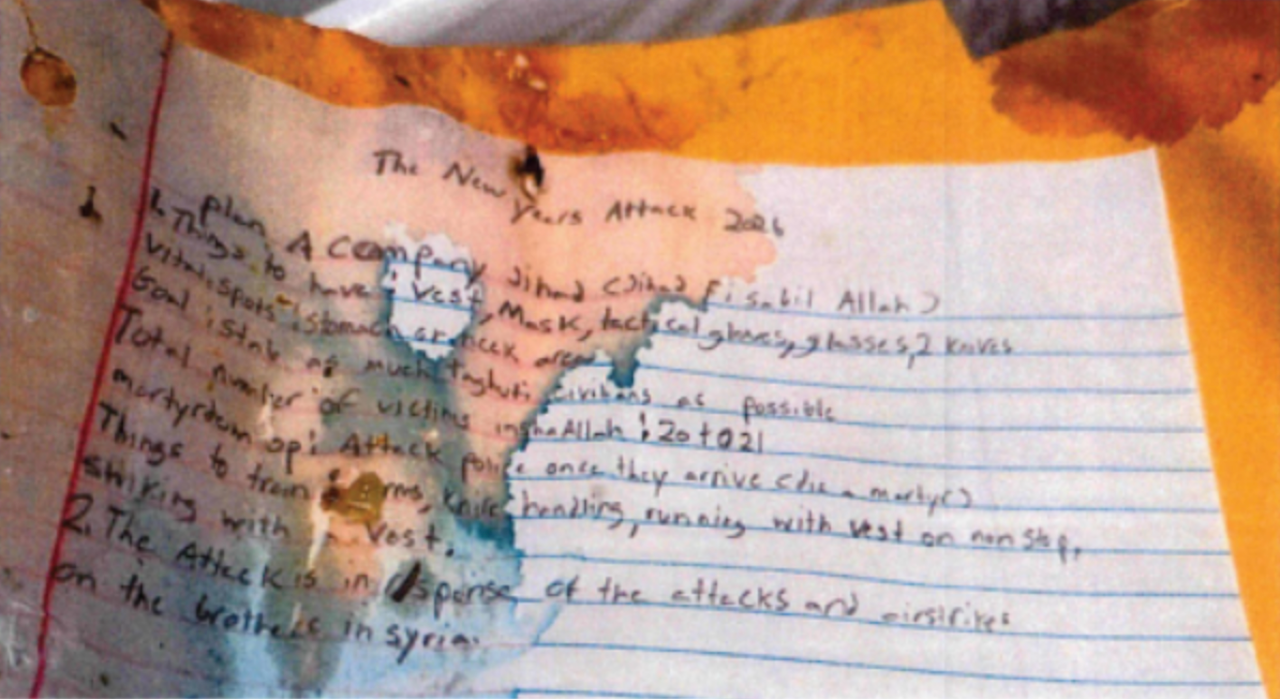 The New Years Attack 2026
plan A Company Jihad (Jihad fi sabil Allah)
1. Things to have : vest, Mask, tactical gloves, glasses, 2 knives
Vital spots : stomach or neck area
Goal : stab as much taghuti civilians as possible
Total number of victims inshaAllah : 20 to 21
martyrdom op: Attack police once they arrive (die a martyr)
Things to train : knife handling, running with vest on non stop,
striking with a vest.
2. The Attack is in of the attacks and airstrikes
on the brothers in syria.